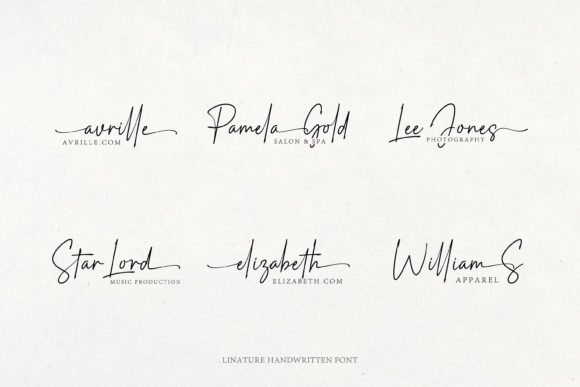 avrille
AVRILLE.COM
Pamela Gold
SALON & SPA
Lee Jones
PHOTOGRAPHY
Star Lord
MUSIC PRODUCTION
elizabeth
ELIZABETH.COM
William S
APPAREL
LINATURE HANDWRITTEN FONT